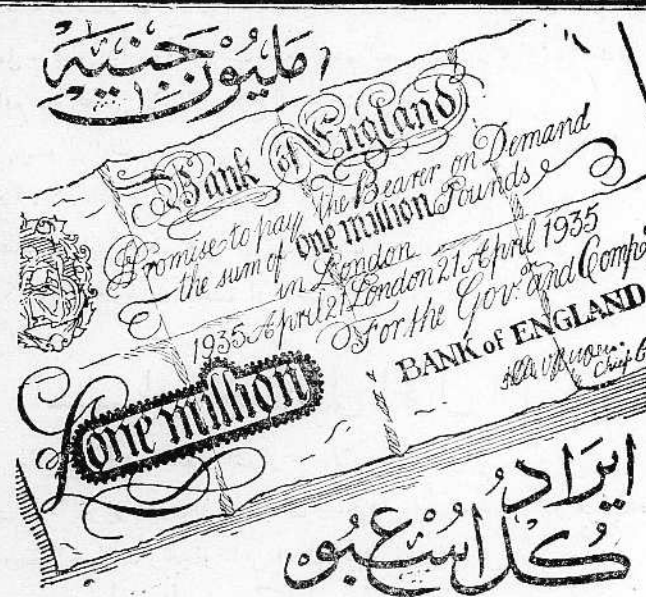 مليون جنيه
Bank of England
Promise to pay the Bearer on Demand
the sum of one million Pounds
in London
1935 April 21 London 21 April 1935
For the Gov.r and Comp
BANK of ENGLAND
Chief
£one million
ايراد
كل اسبوع